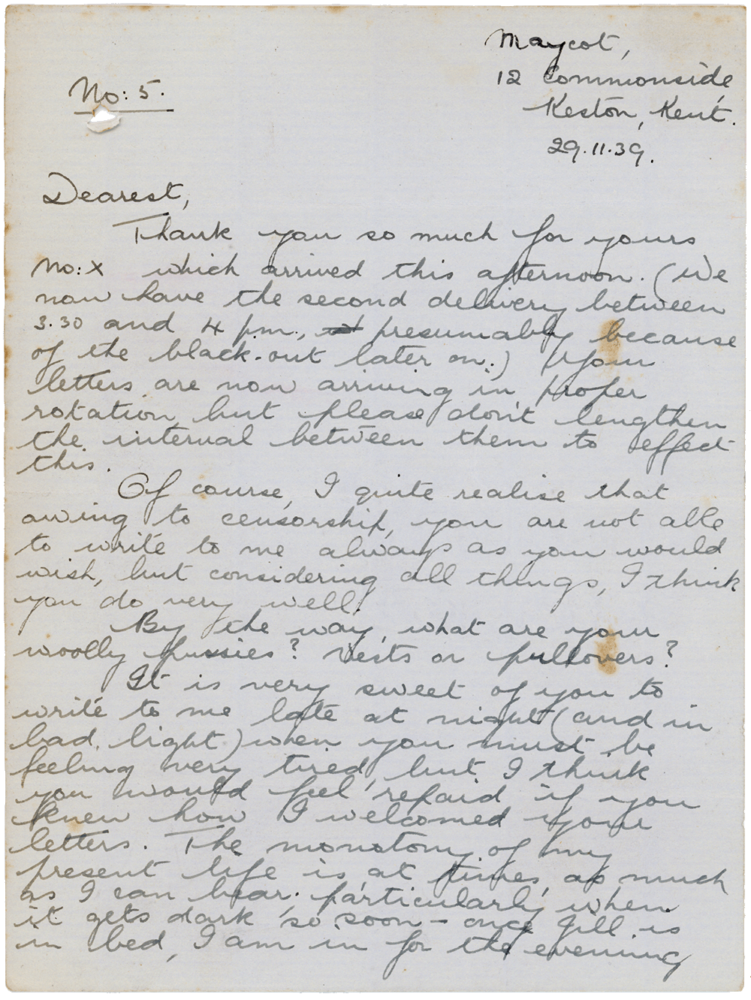 Maycot,
12 Commonside,
Keston, Kent.
29.11.39.
No: 5.
Dearest,
Thank you so much for yours
No: X which arrived this afternoon. (We
now have the second delivery between
3.30 and 4 p.m., presumably because
of the black-out later on.) Your
letters are now arriving in proper
rotation, but please don't lengthen
the interval between them to effect
this.
Of course, I quite realise that
owing to censorship, you are not able
to write to me always as you would
wish, but considering all things, I think
you do very well!
By the way, what are your
woolly pussies? Vests or pullovers?
It is very sweet of you to
write to me late at night (and in
bad light) when you must be
feeling very tired, but I think
you would feel repaid if you
knew how I welcomed your
letters. The monotony of my
present life is at times, as much
as I can bear, particularly when
it gets dark so soon - once Jill is
in bed, I am in for the evening